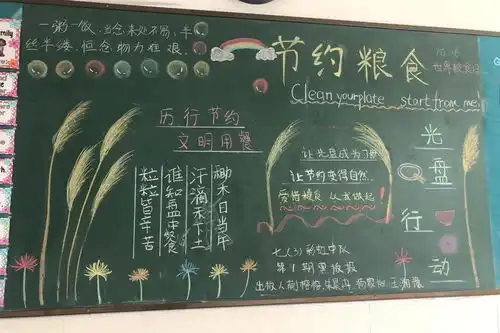 一粥一饭,当念来处不易;半
丝半缕,恒念物力维艰。
节约粮食
10.16
世界粮食日
Clean your plate start from me.
历行节约
文明用餐
锄禾日当午
汗滴禾下土
谁知盘中餐
粒粒皆辛苦
让光盘成为习惯
让节约变得自然
爱惜粮食 从我做起!
光盘行动
七(3)彩虹中队
第1期黑板报
出板人